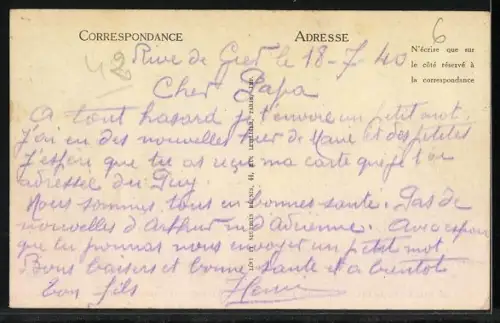 CORRESPONDANCE
ADRESSE
N'écrire que sur
le côté réservé à
la correspondance
6
42
Rive de Gier le 18-7-40
Cher Papa
A tout hasard je t'envoie un petit mot.
J'ai eu des nouvelles hier de Marie et des petites
J'espère que tu as reçu ma carte que je t'ai
adressée du Puy
Nous sommes tous en bonnes santé. Pas de
nouvelles d'Arthur ni d'Adrienne. Avec espoir
que tu pourras nous envoyer un petit mot
Bons baisers et bonne santé et a bientot
ton fils Henri